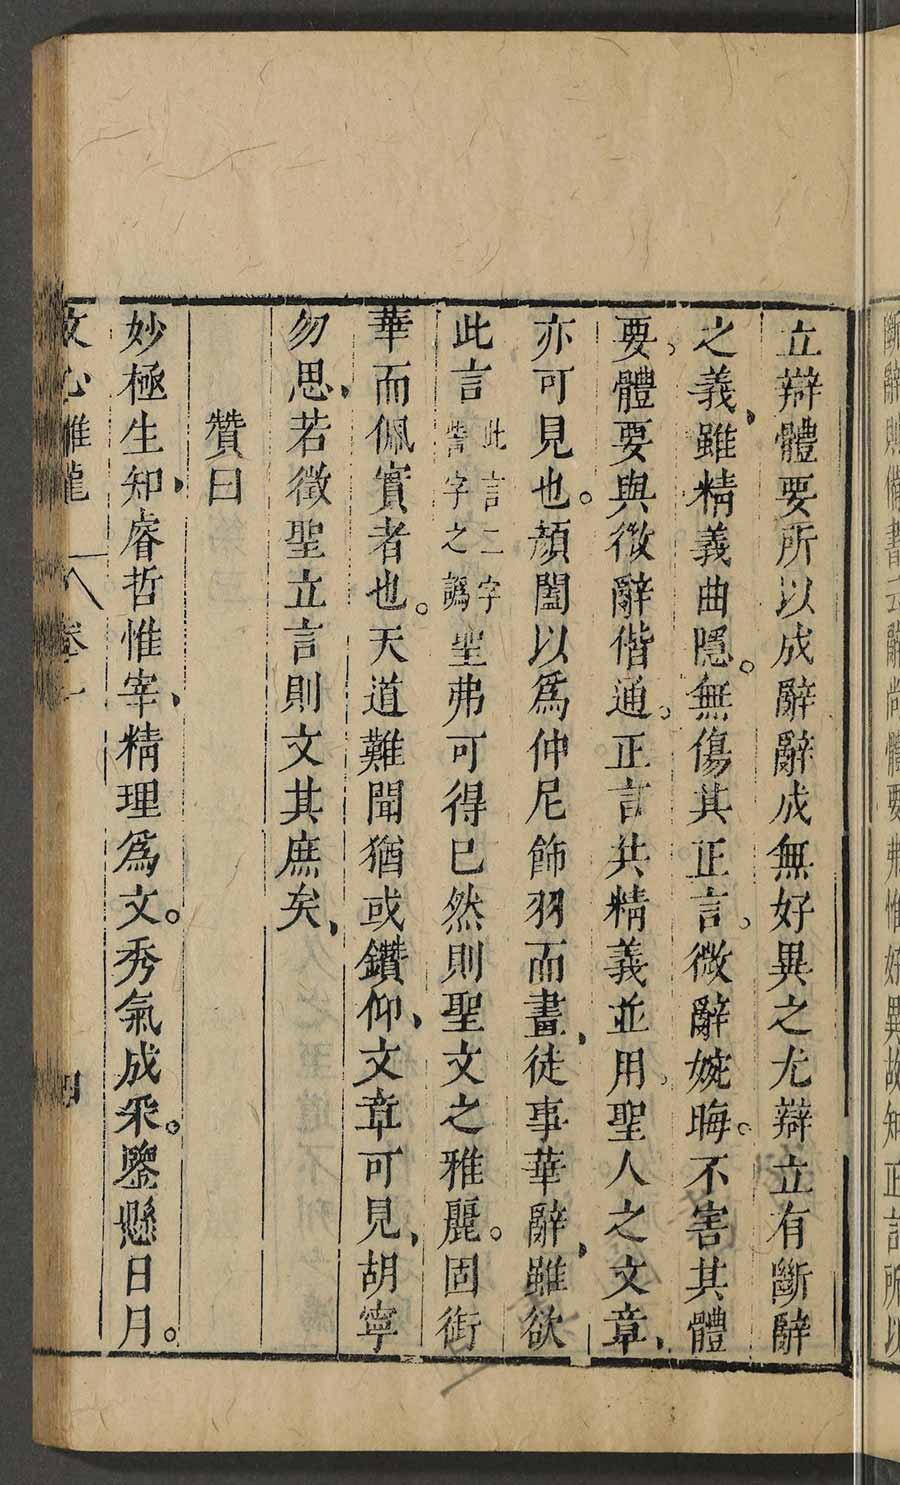 斷辭則備書云辭尚體要弗惟好異故知正言所以
立辯體要所以成辭辭成無好異之尤辯立有斷辭
之義、雖精義曲隱。無傷其正言。微辭婉晦。不害其體
要、體要與微辭偕通。正言共精義並用。聖人之文章、
亦可見也。顏闔以爲仲尼飾羽而畫、徒事華辭、雖欲
此言此言二字訾字之譌聖弗可得已然則聖文之雅麗。固銜
華而佩實者也。天道難聞猶或鑽仰、文章可見、胡寧
勿思、若徵聖立言則文其庶矣、
贊曰
妙極生知、睿哲惟宰、精理爲文。秀氣成采。鑒懸日月。
文心雕龍 卷一 四